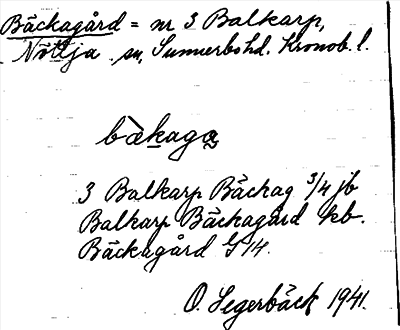 Bäckagård = nr 3 Balkarp,
Nöttja sn, Sunnerbo hd. Kronob. l.
bàkaga
3 Balkarp Bäckag 3/4 jb
Balkarp Bäckagård kb.
Bäckagård G 14.
O. Segerbäck 1941.